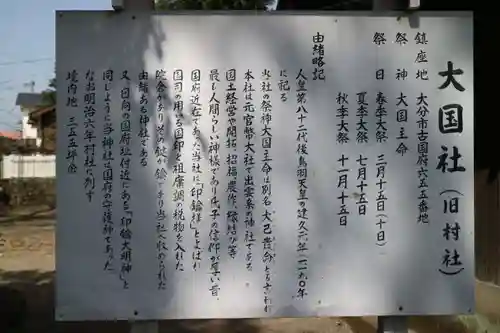 大国社（旧村社）
鎮座地　大分市古国府六五五番地
祭神　大国主命
祭日　春季大祭　三月十五日（十日）
夏季大祭　七月十五日
秋季大祭　十一月十五日
由緒略記
人皇第八十二代後鳥羽天皇の建久元年（一一九〇年
に記る
当社の祭神大国主命は別名「大己貴命」とも云われ
本社は元官幣大社で出雲系の神社である
国土経営や開拓、招福、農作、縁結び等
最も人間らしい神様であり氏子の信仰が厚い昔、
国府近在であった当社は「印鑰様」とよばれ
国司の用いる国印と租庸調の税物を入れた
院舎がありその社が鑰により当社へ収められた
由緒ある神社である
又、日向の国府址付近にある「印鑰大明神」と
同じように当神社は国府の守護神であった
なお明治六年村社に列す
境内地　三五五坪余